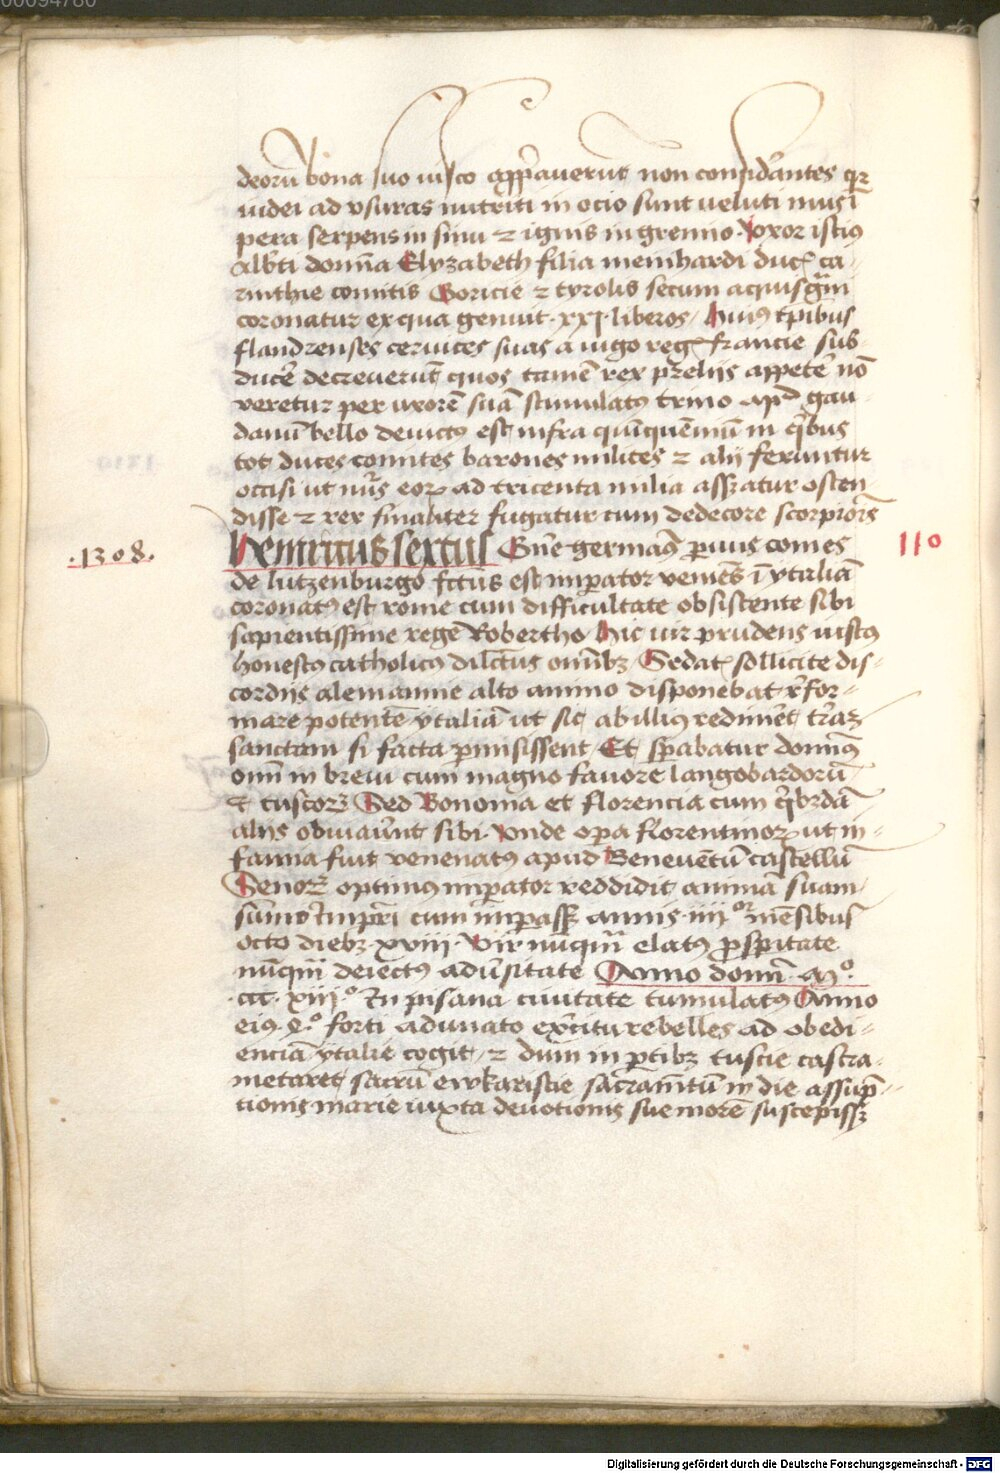 00094780
deorū bona suo fisco app̄averūt non considātes qr
iudei ad vsuras nutriti in ocio sunt veluti mus ī
pera serpens in sinu ⁊ ignis in gremio. Vxor istiꝰ
Alb̄ti domīa Elyzabeth filia meinhardi duc̄ ca-
rinthie comitis Goricie ⁊ tyrolis secum aquisgͣni
coronatur ex qua genuit .xxj. liberos / Huiꝰ tp̄ibus
flandrenses cervices suas a iugo reḡ francie sub
ducē decreverūt quos tamē rex prelijs appetē nō
veretur per uxorē suā stimulatꝰ trino apᵈ gau-
danū bello devictꝰ est infra quīquēniū in qͥbus
tot duces comites barones milites ⁊ alij feruntur
occisi ut nūꝰ eoꝝ ad tricenta milia asšatur osten-
disse ⁊ rex finaliter fugatur cum dedecore scorpiōis
.1308. Heinricus sextus Gn̄e germaꝰ priuis comes 110
de lutzenburgo fctus est imꝑator veniēs ī ytaliā
coronatꝰ est rome cum difficultate obsistente sibi
sapientissime regē Robertho Hic vir prudens iustꝰ
honestꝰ catholicꝰ dilc̄tus omībꝫ / Sedat̄ sollicite dis-
cordijs alemannie alto animo disponebat r̄for-
mare potentē ytaliā ut sic ab illiꝰ redimēt t̄raꝫ
sanctam si facta ꝑmisissent / Et sp̄abatur domīꝰ
oīm in brevi cum magno favore langobardorū
⁊ tuscoꝝ Sed Bononia et florencia cum qͥbꝰdā
alijs obviaūnt sibi. Vnde opa florentinoꝝ ut in-
famia fuit venenatꝰ apud Benevētū castellū
Senoꝝ optimꝰ imꝑator reddidit animā suam
sūmo īmp̄ri cum imꝑassꝫ annis .iiij.ᵒʳ mēsibus
octo diebꝫ .xviij. Vir nūqͣm elatꝰ ꝓsꝑitate
nūqͣm deiectꝰ adūsitate Anno domī .Mͦ.
.ccc. xiij.ͦ In pisana civitate tumulatꝰ Anno
eiꝰ .5.ͦ forti adunato exc̄itu rebelles ad obedi-
enciā ytalie cogit / ⁊ dum in ꝑtibꝫ tuscie castra-
metaret sacrū ewkaristie sacramtū in die assūp-
tionis marie iuxta devotionis sue morē suscepissꝫ
Digitalisierung gefördert durch die Deutsche Forschungsgemeinschaft - DFG